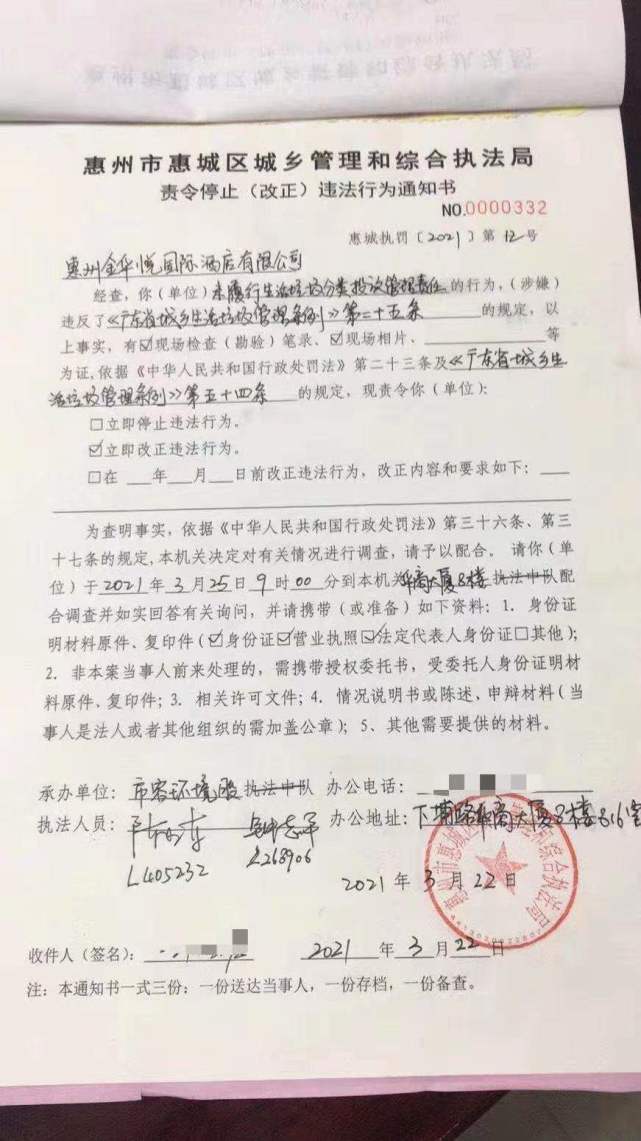 惠州市惠城区城乡管理和综合执法局
责令停止（改正）违法行为通知书
NO.0000332
惠城执罚〔2021〕第12号
惠州金华悦国际酒店有限公司
经查，你（单位）未履行生活垃圾分类投放管理责任的行为，（涉嫌）
违反了《广东省城乡生活垃圾管理条例》第二十五条的规定，以
上事实，有☑现场检查（勘验）笔录、☑现场相片、等
为证，依据《中华人民共和国行政处罚法》第二十三条及《广东省城乡生
活垃圾管理条例》第五十四条的规定，现责令你（单位）：
□立即停止违法行为。
☑立即改正违法行为。
□在 年 月 日前改正违法行为，改正内容和要求如下：
为查明事实，依据《中华人民共和国行政处罚法》第三十六条、第三
十七条的规定，本机关决定对有关情况进行调查，请予以配合。请你（单
位）于2021年3月25日9时00分到本机关华商大厦8楼执法中队配
合调查并如实回答有关询问，并请携带（或准备）如下资料：1. 身份证
明材料原件、复印件（☑身份证☑营业执照☑法定代表人身份证□其他）；
2. 非本案当事人前来处理的，需携带授权委托书，受委托人身份证明材
料原件、复印件；3. 相关许可文件；4. 情况说明书或陈述，申辩材料（当
事人是法人或者其他组织的需加盖公章）；5、其他需要提供的材料。
承办单位：市容环境股执法中队 办公电话：
执法人员： 办公地址：下埔路华商大厦8楼816室
L405232 L268906
2021年3月22日
收件人（签名）： 2021年3月22日
注：本通知书一式三份：一份送达当事人，一份存档，一份备查。